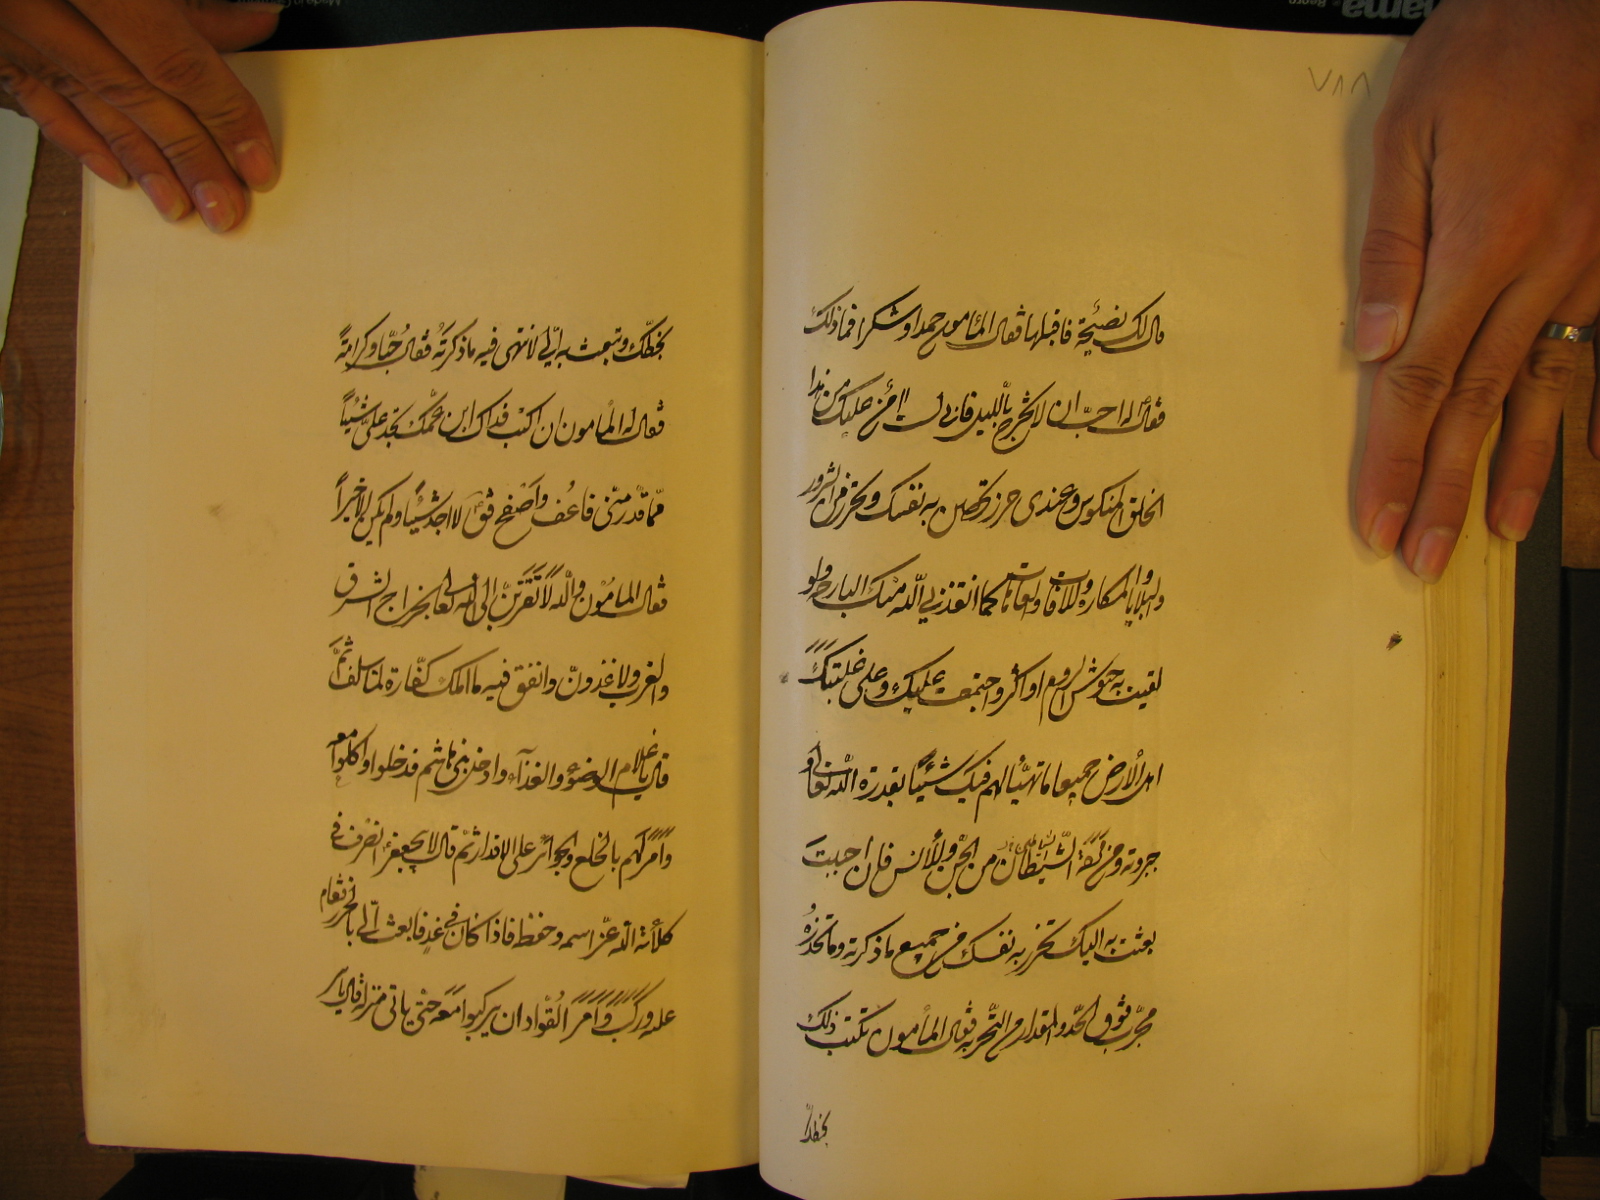 ٧٨٨
قال لك نصيحة فاقبلها فقال المأمون حمدا وشكرا فما ذلك
فقال له احبّ ان لا تخرج بالليل فانى لست اامن عليك من هذا
الخلق المنكوس وعندى حرز تحصن به نفسك وتحرز من الشرور
والبلايا والمكاره والافات والعاهات كما انقذنى اللّه منك البارحة ولو
لقيت به جيوش الروم او اكثر واجتمعت عليك وعلى غلبتك
اهل الأرض جميعا ما تهيّأ لهم فيك شيئا بقدرة اللّه تعالى و
جبروته ومن مردة الشياطين من الجنّ والأنس فان احببت
بعثت به اليك تحرز به نفسك من جميع ما ذكرته وما تحذره
مجرّب فوق الحدّ والمقدار من التجربة فقال المأمون تكتب ذلك
بخطّك
بخطّك وتبعث به الّى لانتهى فيه ما ذكرته فقال حبّا وكرامة
فقال له المأمون ان كنت فداك ابن عمّك تجد علىّ شيئا
ممّا قدر منّى فاعف واصفح فقال لا اجد شيئا ولم يكن الا خيرا
فقال المامون واللّه لاتقربنّ الى اللّه تعالى بخراج الشرق
والغرب ولاغدونّ وانفق فيه ما املك كفّارة لما سلف ثمّ
قال يا غلام الوضوء والغذاء وادخل بنى هاشم فدخلوا واكلوا معه
وامر لهم بالخلع والجوائز على الاقدار ثم قال لابى جعفر انصرف فى
كلأة اللّه عزّ اسمه وحفظه فاذا كان فى غد فابعث الّى بالحرز فقام
عليه وركب وامر القواد ان يركبوا معه حتّى ياتى منزله قال ياسر